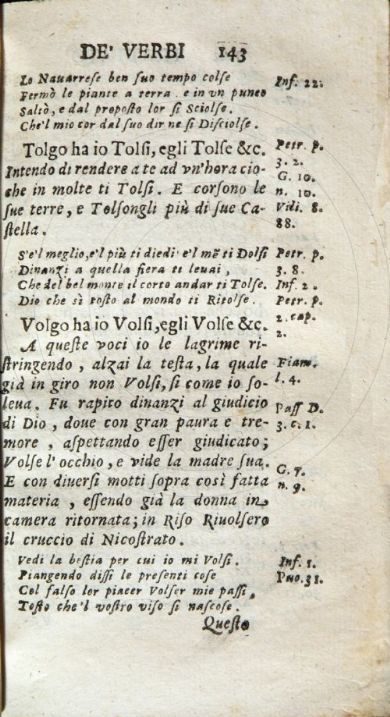 DE' VERBI 143
Lo Nauarrese ben suo tempo colse Inf. 22.
Fermò le piante a terra. e in vn punto
Saltò, e dal proposto lor si Sciolse.
Che'l mio cor dal suo dir ne si Disciolse.
Tolgo ha io Tolsi, egli Tolse &c. Petr. p.
Intendo di rendere a te ad vn'hora ciò- 3. 2.
che in molte ti Tolsi. E corsono le G. 10. n. 10.
sue terre, e Tolsongli più di sue Ca- Vidi. 8.
stella. 88.
S'e'l meglio, e'l più ti diedi e'l mē ti Dolsi Petr. p.
Dinanzi a quella fiera ti leuai, 3. 8.
Che del bel monte il corto andar ti Tolse. Inf. 2.
Dio che sì tosto al mondo ti Ritolse. Petr. p.
Volgo ha io Volsi, egli Volse &c. 2. cap. 2.
A queste voci io le lagrime ri-
stringendo, alzai la testa, la quale Fiam.
già in giro non Volsi, si come io so- l. 4.
leua. Fu rapito dinanzi al giudicio
di Dio, doue con gran paura e tre- Pass D.
more, aspettando esser giudicato; 3. c. 1.
Volse l'occhio, e vide la madre sua.
E con diuersi motti sopra così fatta G. 7.
materia, essendo già la donna in n. 9.
camera ritornata; in Riso Riuolsero
il cruccio di Nicostrato.
Vedi la bestia per cui io mi Volsi. Inf. 1.
Piangendo dissi le presenti cose 31.
Col falso lor piacer Volser mie passi,
Tosto che'l vostro viso si nascose.
Questo